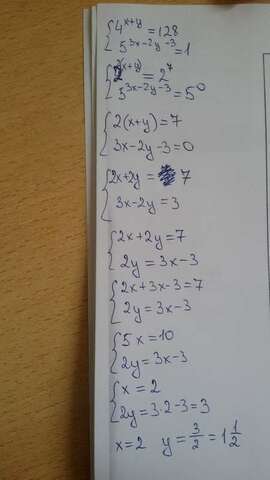 {4^{x+y} = 128
5^{3x-2y-3} = 1
{2^{2(x+y)} = 2^7
5^{3x-2y-3} = 5^0
{2(x+y) = 7
3x-2y-3=0
{2x+2y = 7
3x-2y = 3
{2x+2y=7
2y = 3x-3
{2x+3x-3=7
2y = 3x-3
{5x=10
2y=3x-3
{x=2
2y=3·2-3=3
x=2 y=\frac{3}{2}=1\frac{1}{2}